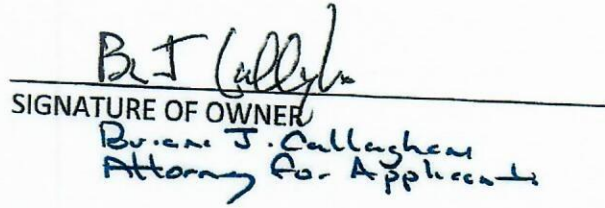 B J Callaghan
SIGNATURE OF OWNER
Brian J. Callaghan
Attorney for Applicants